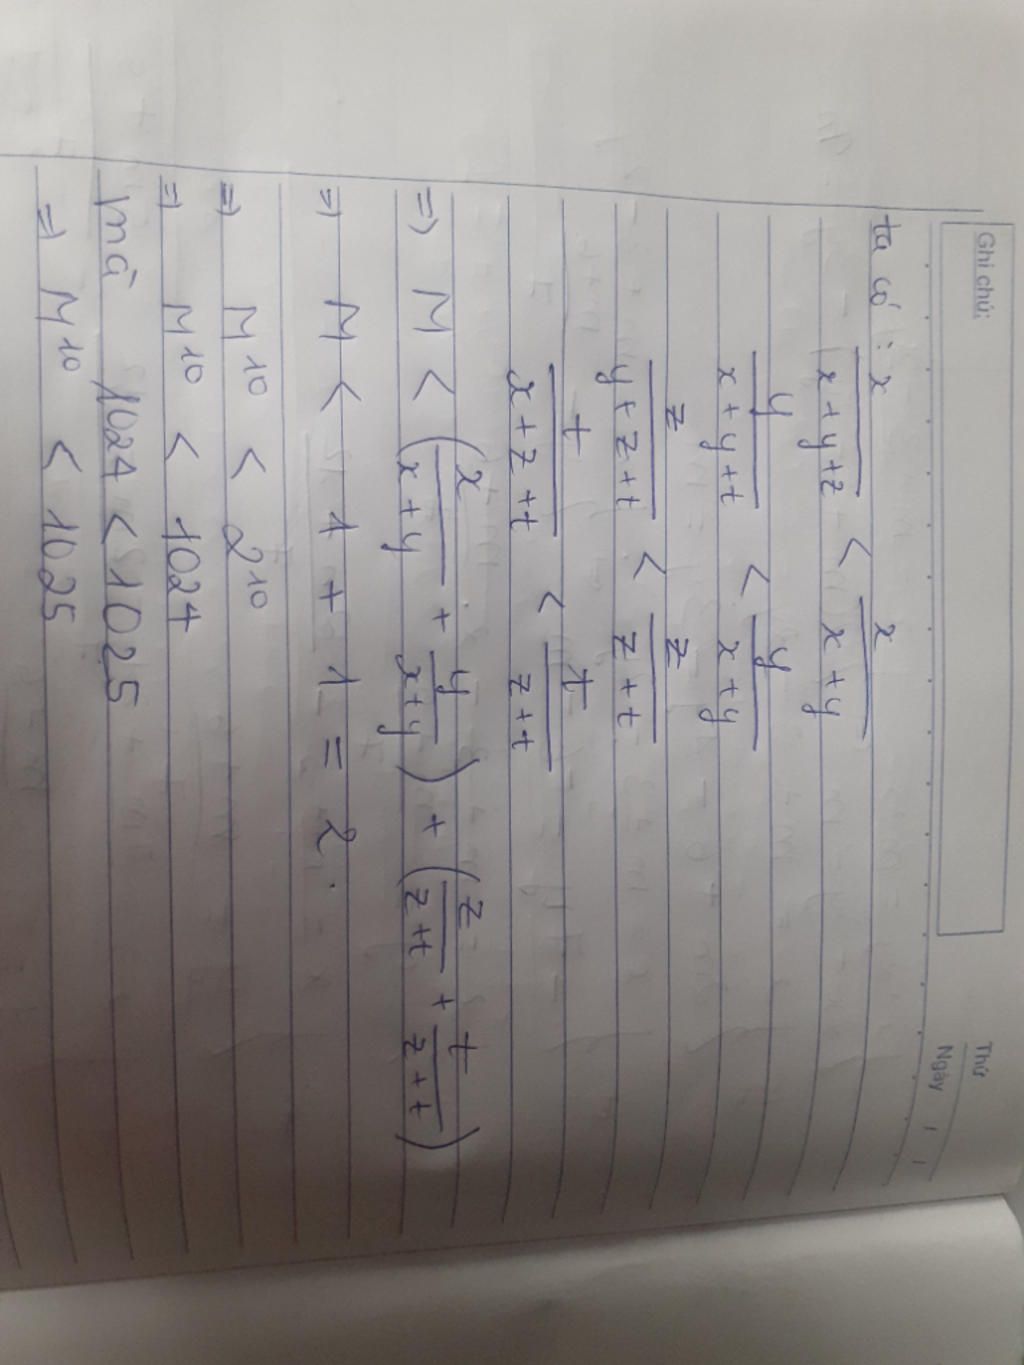 Ghi chú:
Thứ
Ngày / /
ta có : x / (x + y + z) < x / (x + y)
y / (x + y + t) < y / (x + y)
z / (y + z + t) < z / (z + t)
t / (x + z + t) < t / (z + t)
=> M < (x / (x + y) + y / (x + y)) + (z / (z + t) + t / (z + t))
=> M < 1 + 1 = 2.
=> M^10 < 2^10
=> M^10 < 1024
mà 1024 < 1025
=> M^10 < 1025